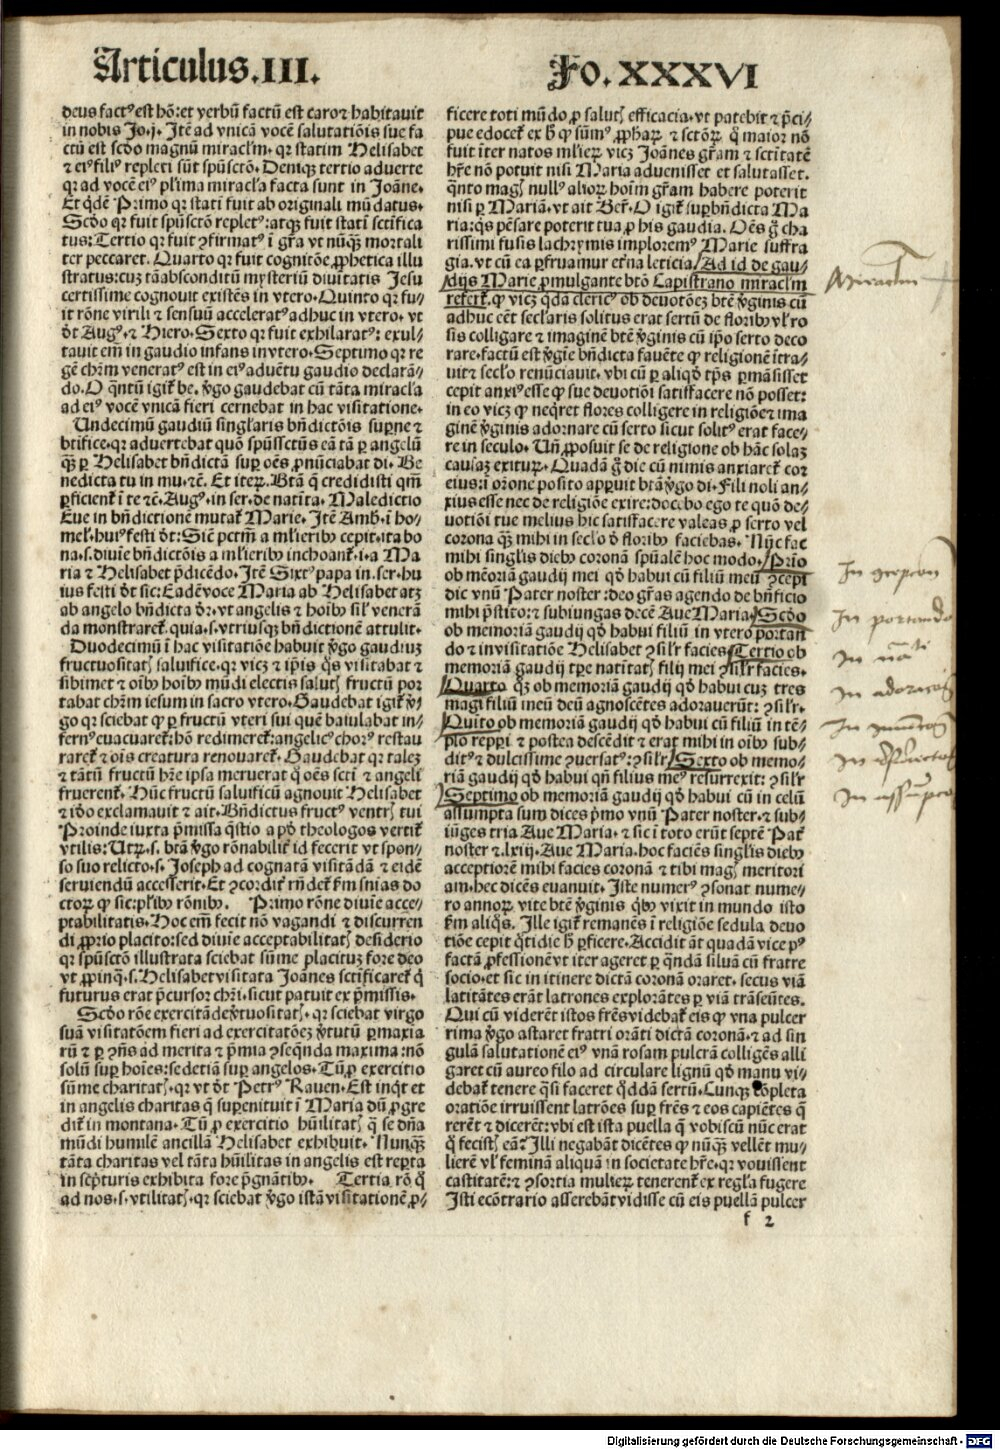 Articulus.III.
Fo. XXXVI
deus factꝰ est hō: et verbū factū est caro ⁊ habitauit
in nobis Jo.j. Itē ad vnicā vocē salutatiōis sue fa
ctū est scdo magnū miracľm. qꝛ statim Helisabet
⁊ eiꝰ filiꝰ repleti sūt spūsctō. Deniqꝫ tertio aduerte
qꝛ ad vocē eiꝰ pľima miracľa facta sunt in Joāne.
Et qdē Primo qꝛ stati fuit ab originali mūdatus.
Scdo qꝛ fuit spūsctō repletꝰ: atqꝫ fuit stati sctifica
tus: Tertio qꝛ fuit ꝯfirmatꝰ ī gra vt nūqꝫ mortali
ter peccaret. Quarto qꝛ fuit cognitōe ꝓphetica illu
stratus: cuz tā absconditū mysteriū diuitatis Jesu
certissime cognouit existēs in vtero. Quinto qꝛ fu⸗
it rōne virili ⁊ sensuū acceleratꝰ adhuc in vtero. vt
dt Augꝰ. ⁊ Hiero. Sexto qꝛ fuit exhilaratꝰ: exul⸗
tauit em in gaudio infans in vtero. Septimo qꝛ re
gē chrm veneratꝰ est in eiꝰ aduētu gaudio declarā⸗
do. O qntū igiť be. vgo gaudebat cū tāta miracľa
ad eiꝰ vocē vnicā fieri cernebat in hac visitatione.
Undecimū gaudiū singľaris bn̄dictōis suꝑne ⁊
btifice. qꝛ aduertebat quō spūssctus eā tā ꝑ angelū
qꝫ ꝑ Helisabet bn̄dictā suꝑ oēs ꝓnūciabat di. Be
nedicta tu in mu. ⁊c. Et iteꝝ. Btā q̄ credidisti qm̄
ꝑficienť ī te ⁊c. Augꝰ. in ser. de natīta. Maledictio
Eue in bn̄dictionē mutať Marie. Itē Amb. ī ho⸗
meľ. huiꝰ festi dt: Siē pctm̄ a mľieribꝰ cepit. ita bo
na. s. diuīe bn̄dictōis a mľieribꝰ inchoanť. i. a Ma
ria ⁊ Helisabet pdicēdo. Itē Sixtꝰ papa in. ser. hu
ius festi dt sic: Eadē voce Maria ab Helisabet atqꝫ
ab angelo bn̄dicta dr. vt angelis ⁊ hoībꝰ siľ venerā
da monstrareť. quia. s. vtriusqꝫ bn̄dictionē attulit.
Duodecimū ī hac visitatiōe habuit vgo gaudiuz
fructuositatꝭ salutifice. qꝛ vicz ⁊ ipis qs visitabat ⁊
sibimet ⁊ oībꝰ hoībꝰ mūdi electis salutꝭ fructū por
tabat chrm iesum in sacro vtero. Gaudebat igiť v⸗
go qꝛ sciebat qꝫ ꝑ fructū vteri sui quē baiulabat in⸗
fernꝰ euacuareť: hō redimereť: angelicꝰ chorꝰ restau
rareť ⁊ oīs creatura renouareť. Gaudebat qꝛ talez
⁊ tātū fructū hr̄e ipsa meruerat q̄ oēs scti ⁊ angeli
fruerenť. Hūc fructū saluificū agnouit Helisabet
⁊ iō exclamauit ⁊ ait. Bn̄dictus fructꝰ ventrꝭ tui
Proinde iuxta pmissa qstio apd theologos vertiť
vtilis: Utꝝ. s. btā vgo rōnabiliť id fecerit vt spon⸗
so suo relicto. s. Joseph ad cognatā visitādā ⁊ eidē
seruiendū accesserit. Et ꝯcordiť rn̄deť fm snias do
ctoꝝ qꝫ sic: pľibꝰ rōnibꝰ. Primo rōne diuīe acce⸗
ptabilitatis. Hoc em fecit nō vagandi ⁊ discurren
di ꝓprio placito: sed diuīe acceptabilitatꝭ desiderio
qꝛ spūsctō illustrata sciebat sūme placituꝫ fore deo
vt ꝓpinq̄. s. Helisabet visitata Joānes sctificareť q
futurus erat pcursor chri. sicut patuit ex pmissis.
Scdo rōe exercitāde vtuositatꝭ. qꝛ sciebat virgo
suā visitatōem fieri ad exercitatōez vtutū ꝑmaxia
rū ⁊ ꝑ ꝯns ad merita ⁊ pmia ꝯseqnda maxima: nō
solū suꝑ hoīes: sed etiā suꝑ angelos. Tū ꝓ exercitio
sūme charitatꝭ. qꝛ vt dt Petrꝰ Rauen. Est inqt et
in angelis charitas q̄ suꝑenituit ī Maria dū ꝓgre
diť in montana. Tū ꝓ exercitio hūilitatꝭ q̄ se dn̄a
mūdi humilē ancillā Helisabet exhibuit. Nunqꝫ
tāta charitas vel tāta hūilitas in angelis est reꝑta
in scpturis exhibita fore pgnātibꝰ. Tertia rō q̄
ad nos. s. vtilitatꝭ. qꝛ sciebat vgo istā visitationē ꝓ⸗
ficere toti mūdo ꝓ salutꝭ efficacia. vt patebit ⁊ pci⸗
pue edoceť ex h̄ qꝫ sūmꝰ ꝓphaꝝ ⁊ sctōꝝ q̄ maior nō
fuit īter natos mľieꝝ vicz Joānes grām ⁊ sctitatē
hr̄e nō potuit nisi Maria aduenisset et salutasset.
qnto magꝭ nullꝰ alioꝝ hoīm grām habere poterit
nisi ꝑ Mariā. vt ait Ber̄. O igiť suꝑbn̄dicta Ma
ria: qs pēsare poterit tua ꝓ his gaudia. Oēs g̊ cha
rissimi fusis lachrymis imploremꝰ Marie suffra
gia. vt cū ea ꝑfruamur etn̄a leticia. Ad id de gau⸗
dijs Marie ꝓmulgante btō Capistrano miracľm
referť. qꝫ vicz qda clericꝰ ob deuotōez btē vginis cū
adhuc eēt secľaris solitus erat sertū de floribꝰ vľ ro
sis colligare ⁊ imaginē btē vginis cū ipo serto deco
rare. factū est vgīe bn̄dicta fauēte qꝫ religionē itra⸗
uit ⁊ secľo renūciauit. vbi cū ꝑ aliqd tps ꝑmāsisset
cepit anxiꝰ esse qꝫ sue deuotiōi satisfacere nō posset:
in eo vicz qꝫ neqret flores colligere in religiōe ⁊ ima
ginē vginis adornare cū serto sicut solitꝰ erat face⸗
re in seculo. Un̄ ꝓposuit se de religione ob hāc solaz
causaz exituꝝ. Quadā g̊ die cū nimis anxiareť cor
eius: ī orōne posito apꝑuit btā vgo di. Fili noli an⸗
xius esse nec de religiōe exire: docebo ego te quō de⸗
uotiōi tue melius hic satisfacere valeas ꝓ serto vel
corona qꝫ mihi in secľo d floribꝰ faciebas. Nūc fac
mihi singľis diebꝰ coronā spūalē hoc modo. Prio
ob mēoriā gaudij mei qd habui cū filiū meū ꝯcepi
dic vnū Pater noster: deo grās agendo de bn̄ficio
mihi pstito: ⁊ subiungas decē Aue Maria. Scdo
ob memoriā gaudij qd habui filiū in vtero portan
do ⁊ in visitatiōe Helisabet ⁊ siľr facies. Tertio ob
memoriā gaudij tpe natītatꝭ filij mei ⁊ siľr facies.
Quarto qꝫ ob memoriā gaudij qd habui cuz tres
magi filiū meū deū agnoscētes adorauerūt: ⁊ siľr.
Quīto ob memoriā gaudij qd habui cū filiū in tē⸗
plo reppi ⁊ postea descēdit ⁊ erat mihi in oībꝰ sub⸗
ditꝰ ⁊ dulcissime ꝯuersatꝰ: ⁊ siľr. Sexto ob memo⸗
riā gaudij qd habui qn̄ filius meꝰ resurrexit: ⁊ siľr
Septimo ob memoriā gaudij qd habui cū in celū
assumpta sum dices pmo vnū Pater noster. ⁊ sub⸗
iūges tria Aue Maria. ⁊ sic ī toto erūt septē Pať
noster ⁊. lxiij. Aue Maria. hoc faciēs singľis diebꝰ
acceptiorē mihi facies coronā ⁊ tibi magꝭ meritori
am. hec dicēs euanuit. Iste numerꝰ ꝯsonat nume⸗
ro annoꝝ vite btē vginis qbꝰ vixit in mundo isto
fm aliqs. Ille igiť remanēs ī religiōe sedula deuo
tiōe cepit qtidie h̄ ꝑficere. Accidit āt quadā vice pꝰ
factā ꝓfessionē vt iter ageret ꝑ qndā siluā cū fratre
socio. et sic in itinere dictā coronā oraret. secus viā
latitātes erāt latrones explorātes ꝑ viā trāseūtes.
Qui cū viderēt istos frēs videbať eis qꝫ vna pulcer
rima vgo astaret fratri orāti dictā coronā. ⁊ ad sin
gulā salutationē eiꝰ vnā rosam pulcrā colligēs alli
garet cū aureo filo ad circulare lignū qd manu vi⸗
debať tenere qsi faceret qddā sertū. Cunqꝫ cōpleta
oratiōe irruissent latrōes suꝑ frēs ⁊ eos capiētes q̄
rerēt ⁊ dicerēt: vbi est ista puella q̄ vobiscū nūc erat
qd fecistꝭ eā? Illi negabāt dicētes qꝫ nūqꝫ vellēt mu⸗
lierē vľ feminā aliquā in societate hr̄e. qꝛ vouissent
castitatē: ⁊ ꝯsortia mulieꝝ tenerenť ex regľa fugere
Isti ecōtrario asserebāt vidisse cū eis puellā pulcer
f 2
Miraclm
In portando
In adoracō